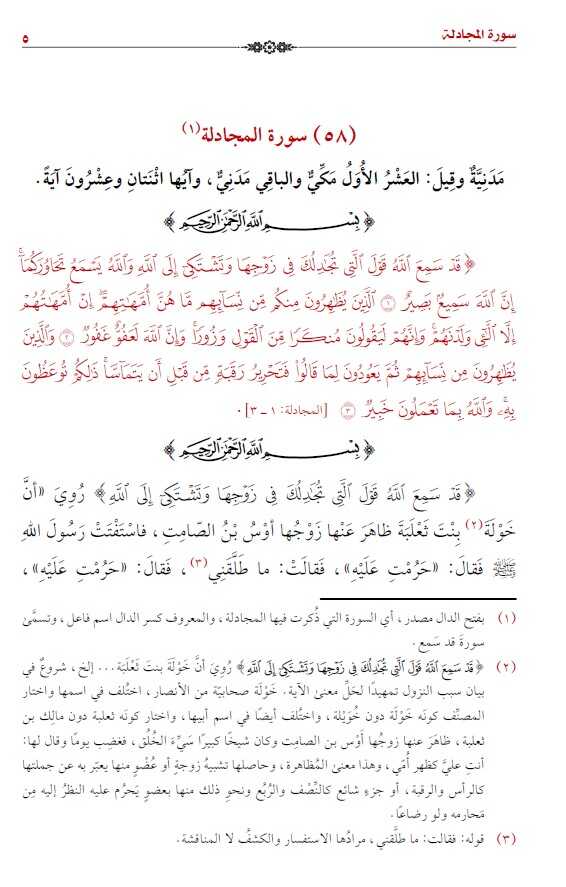 سورة المجادلة
٥
(٥٨) سورة المجادلة(١)
مَدَنِيَّةٌ وقِيلَ: العَشْرُ الأُوَلُ مَكِّيٌّ والباقِي مَدَنِيٌّ، وآيُها اثْنَتانِ وعِشْرُونَ آيَةً.
﴿بِسْمِ اللَّهِ الرَّحْمَٰنِ الرَّحِيمِ﴾
﴿قَدْ سَمِعَ اللَّهُ قَوْلَ الَّتِي تُجَادِلُكَ فِي زَوْجِهَا وَتَشْتَكِي إِلَى اللَّهِ وَاللَّهُ يَسْمَعُ تَحَاوُرَكُمَا ۚ
إِنَّ اللَّهَ سَمِيعٌ بَصِيرٌ ١ الَّذِينَ يُظَاهِرُونَ مِنكُم مِّن نِّسَائِهِم مَّا هُنَّ أُمَّهَاتِهِمْ ۖ إِنْ أُمَّهَاتُهُمْ
إِلَّا اللَّائِي وَلَدْنَهُمْ ۚ وَإِنَّهُمْ لَيَقُولُونَ مُنكَرًا مِّنَ الْقَوْلِ وَزُورًا ۚ وَإِنَّ اللَّهَ لَعَفُوٌّ غَفُورٌ ٢ وَالَّذِينَ
يُظَاهِرُونَ مِن نِّسَائِهِمْ ثُمَّ يَعُودُونَ لِمَا قَالُوا فَتَحْرِيرُ رَقَبَةٍ مِّن قَبْلِ أَن يَتَمَاسَّا ۚ ذَٰلِكُمْ تُوعَظُونَ
بِهِ ۚ وَاللَّهُ بِمَا تَعْمَلُونَ خَبِيرٌ ٣﴾ [المجادلة: ١ - ٣].
﴿بِسْمِ اللَّهِ الرَّحْمَٰنِ الرَّحِيمِ﴾
﴿قَدْ سَمِعَ اللَّهُ قَوْلَ الَّتِي تُجَادِلُكَ فِي زَوْجِهَا وَتَشْتَكِي إِلَى اللَّهِ﴾ رُوِيَ «أنَّ
خَوْلَةَ(٢) بِنْتَ ثَعْلَبَةَ ظاهَرَ عَنْها زَوْجُها أوْسُ بْنُ الصّامِتِ، فاسْتَفْتَتْ رَسُولَ اللهِ
ﷺ فَقالَ: «حَرُمْتِ عَلَيْهِ»، فَقالَتْ: ما طَلَّقَنِي(٣)، فَقالَ: «حَرُمْتِ عَلَيْهِ»،
(١) بفتح الدال مصدر، أي السورة التي ذُكرت فيها المجادلة، والمعروف كسر الدال اسم فاعل، وتسمَّى
سورةَ قد سَمِع.
(٢) ﴿قَدْ سَمِعَ اللَّهُ قَوْلَ الَّتِي تُجَادِلُكَ فِي زَوْجِهَا وَتَشْتَكِي إِلَى اللَّهِ﴾ رُوِيَ أنَّ خَوْلةَ بنتَ ثَعْلَبَة... إلخ، شروعٌ في
بيان سبب النزول تمهيدًا لحَلِّ معنى الآية. خَوْلَة صحابيّة من الأنصار، اختُلف في اسمها واختار
المصنِّف كونَه خَوْلَة دون خُوَيْلة، واختُلف أيضًا في اسم أبيها، واختار كونَه ثعلبة دون مالِك بن
ثعلبة، ظاهَرَ عنها زوجُها أَوْس بن الصامت وكان شيخًا كبيرًا سَيِّءَ الخُلُق، فغَضِب يومًا وقال لها:
أنتِ عليَّ كظهر أُمِّي، وهذا معنى المُظاهرة، وحاصلها تشبيهُ زوجةٍ أو عُضْوٍ منها يعبّر به عن جملتها
كالرأس والرقبة، أو جزءٍ شائع كالنِّصْف والرُّبُع ونحوِ ذلك منها بعضوٍ يَحرُم عليه النظرُ إليه مِن
مَحارمه ولو رضاعا.
(٣) قوله: فقالت: ما طلَّقني، مرادُها الاستفسار والكشفُ لا المناقشة.